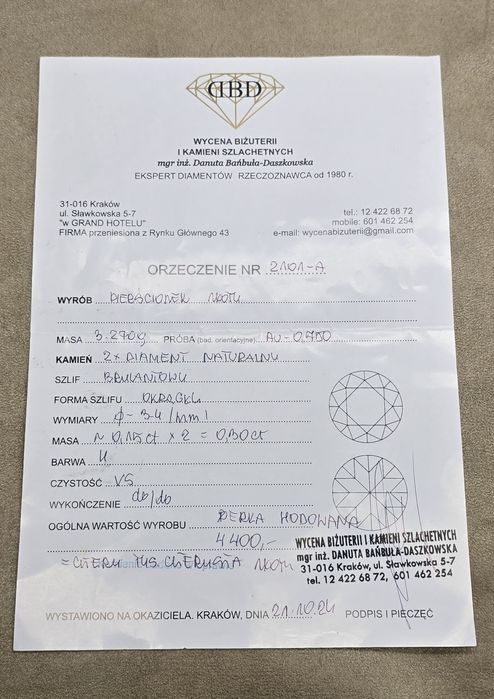 DBD
WYCENA BIŻUTERII
I KAMIENI SZLACHETNYCH
mgr inż. Danuta Bańbuła-Daszkowska
EKSPERT DIAMENTÓW RZECZOZNAWCA od 1980 r.
31-016 Kraków
ul. Sławkowska 5-7
"w GRAND HOTELU"
FIRMA przeniesiona z Rynku Głównego 43
tel.: 12 422 68 72
mobile: 601 462 254
e-mail: wycenabizuterii@gmail.com
ORZECZENIE NR 2101-A
WYRÓB PIERŚCIONEK
MASA 3.270g PRÓBA (bad. orientacyjne) AU-0,500
KAMIEŃ 2x DIAMENT NATURALNY
SZLIF BRYLANTOWY
FORMA SZLIFU OKRĄGŁY
WYMIARY ϕ-3.4 /mm/
MASA ~ 0,15ct x 2 = 0,30ct
BARWA H
CZYSTOŚĆ VS
WYKOŃCZENIE db/db
PERŁA HODOWANA
OGÓLNA WARTOŚĆ WYROBU 4400,-
= CZTERY TYS. CZTERYSTA
WYCENA BIŻUTERII I KAMIENI SZLACHETNYCH
mgr inż. DANUTA BAŃBUŁA-DASZKOWSKA
31-016 Kraków, ul. Sławkowska 5-7
tel. 12 422 68 72, 601 462 254
WYSTAWIONO NA OKAZICIELA. KRAKÓW, DNIA 21.10.24 PODPIS I PIECZĘĆ